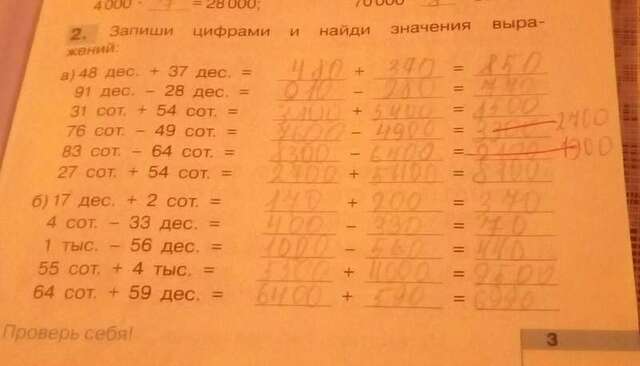 4 000 · 7 = 28 000; 70 000
2. Запиши цифрами и найди значения выра-
жений:
а) 48 дес. + 37 дес. = 480 + 370 = 850
91 дес. – 28 дес. = 910 – 280 =
31 сот. + 54 сот. = 3100 + 5400 = 8500
76 сот. – 49 сот. = 7600 – 4900 = 2700
83 сот. – 64 сот. = 8300 – 6400 = 1900
27 сот. + 54 сот. = 2700 + 5400 = 8100
б) 17 дес. + 2 сот. = 170 + 200 = 370
4 сот. – 33 дес. = 400 – 330 = 70
1 тыс. – 56 дес. = 1000 – 560 = 440
55 сот. + 4 тыс. = 5500 + 4000 = 9500
64 сот. + 59 дес. = 6400 + 590 = 6990
Проверь себя!
3